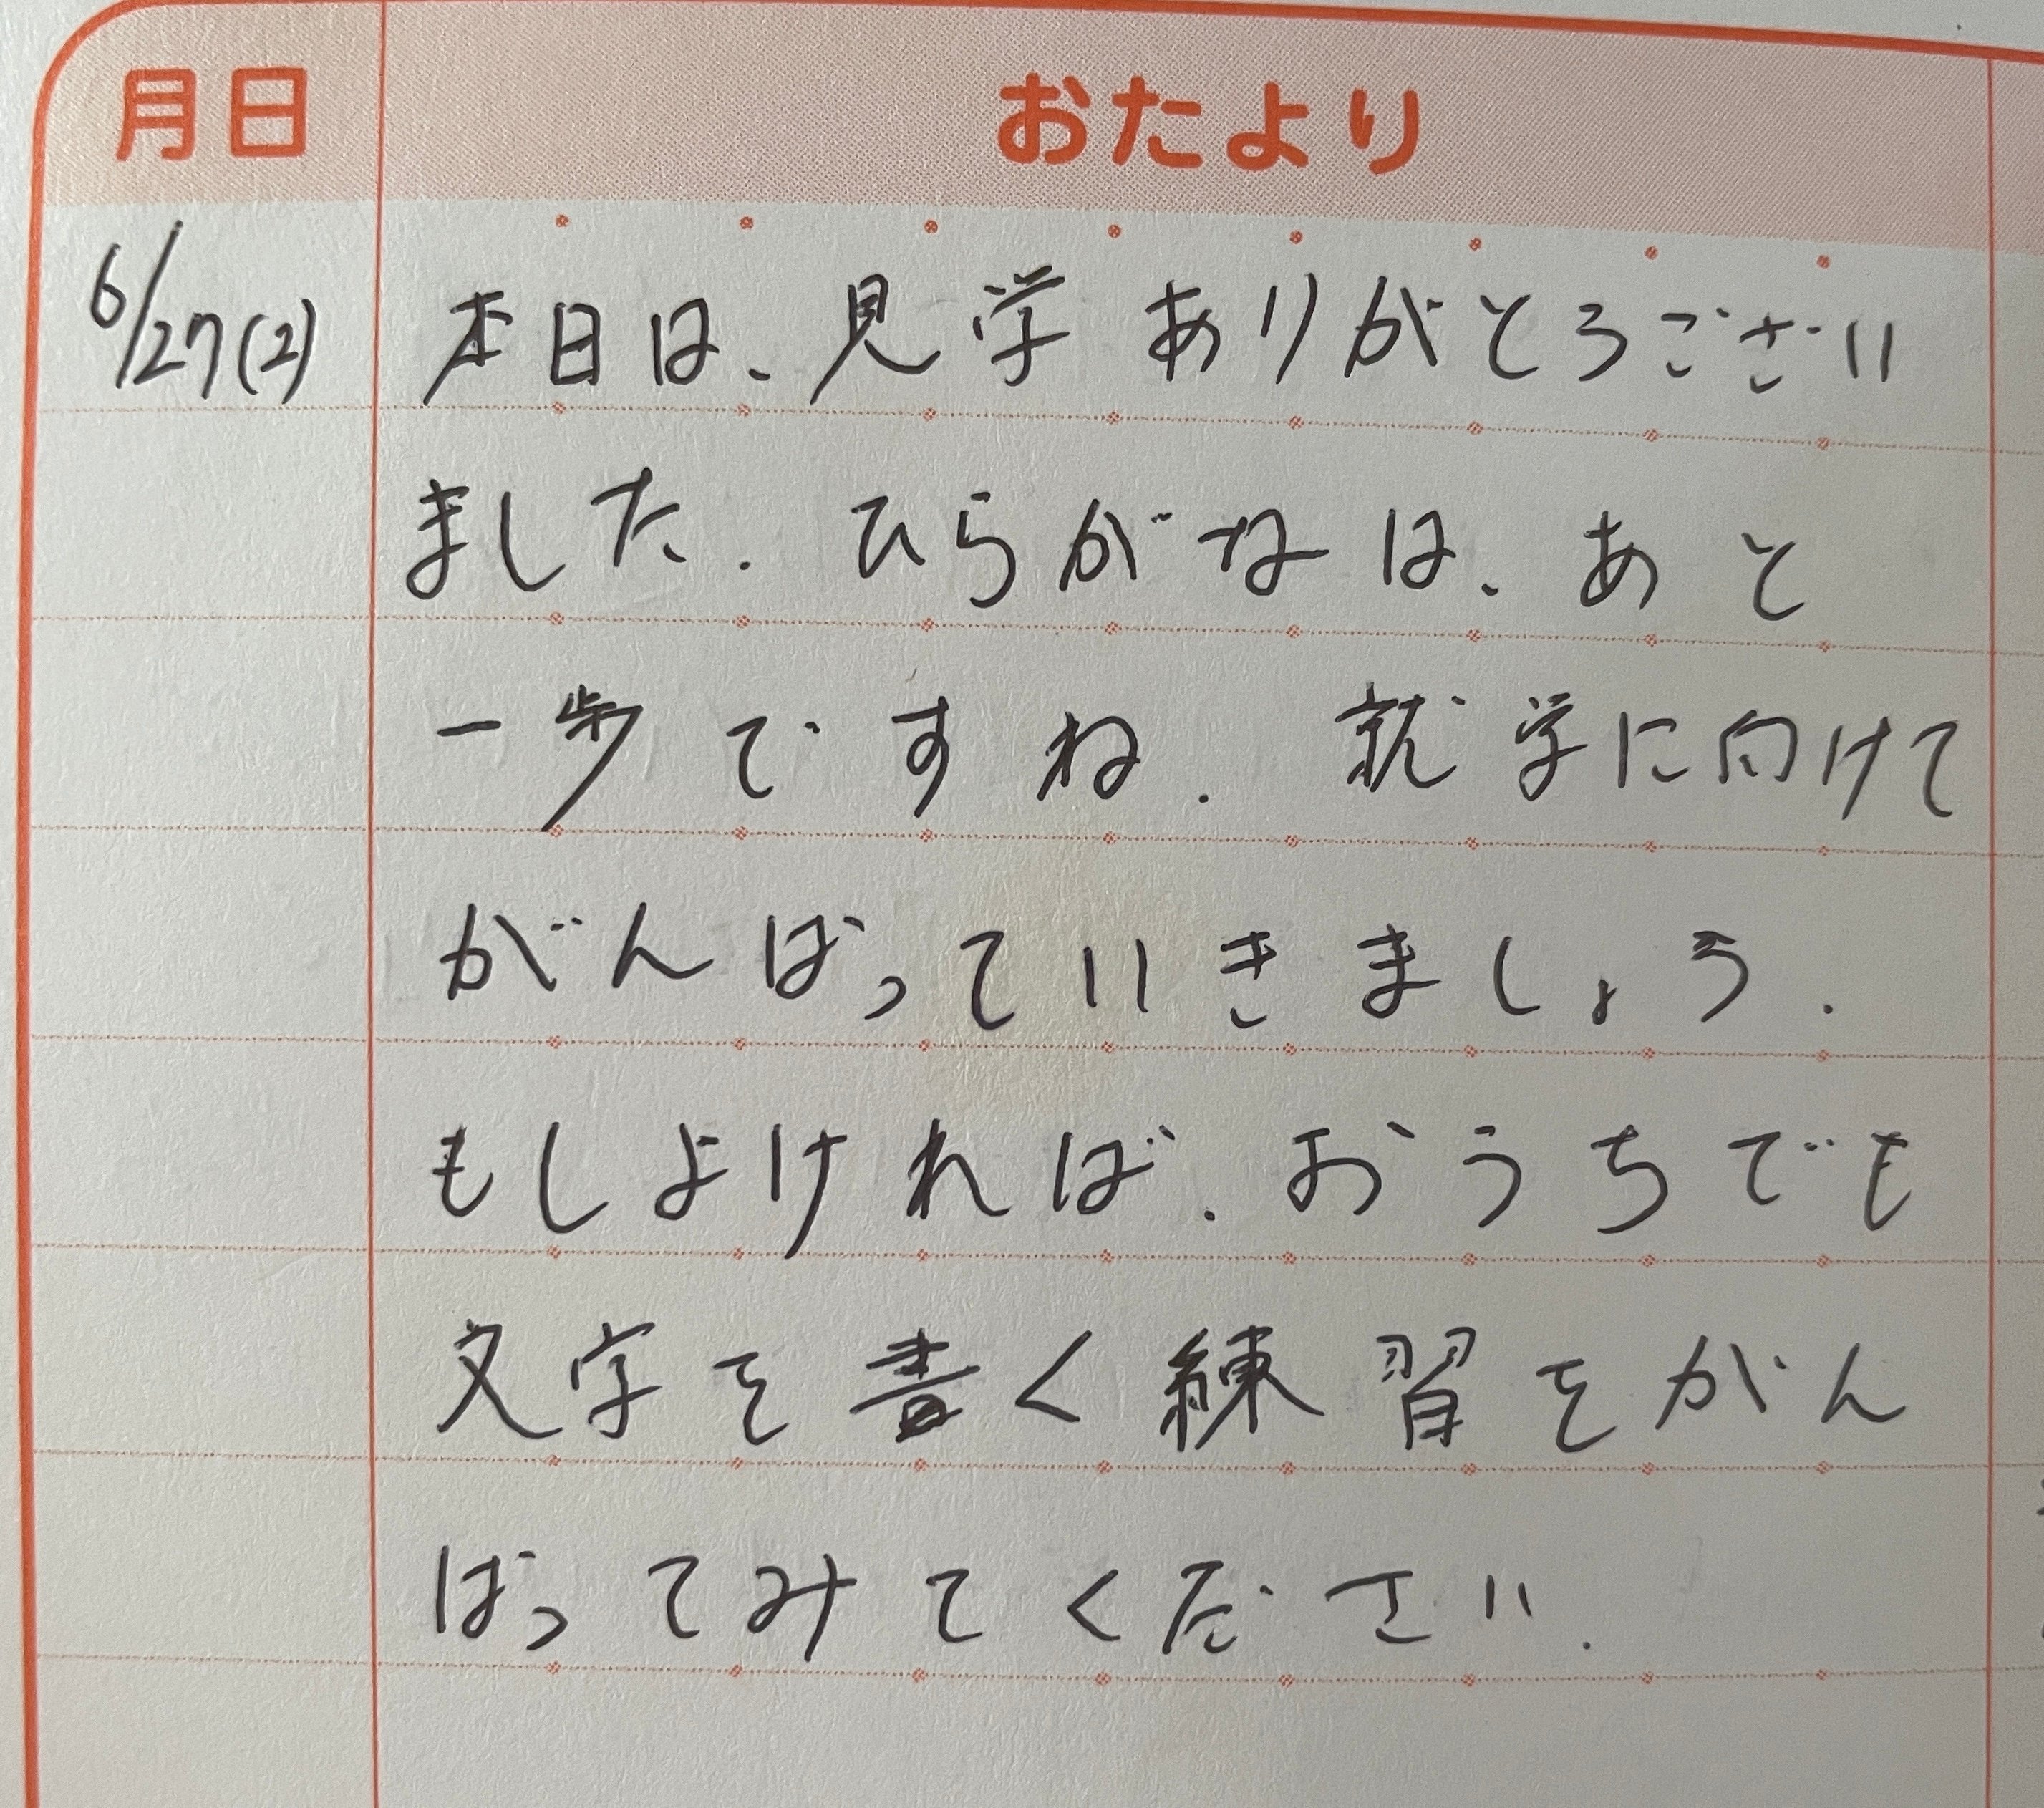 月日 おたより
6/27(2) 本日は、見学ありがとうござい
ました. ひらがなは、あと
一歩ですね. 就学に向けて
がんばっていきましょう.
もしよければ. おうちでも
文字を書く練習をがん
ばってみてください.